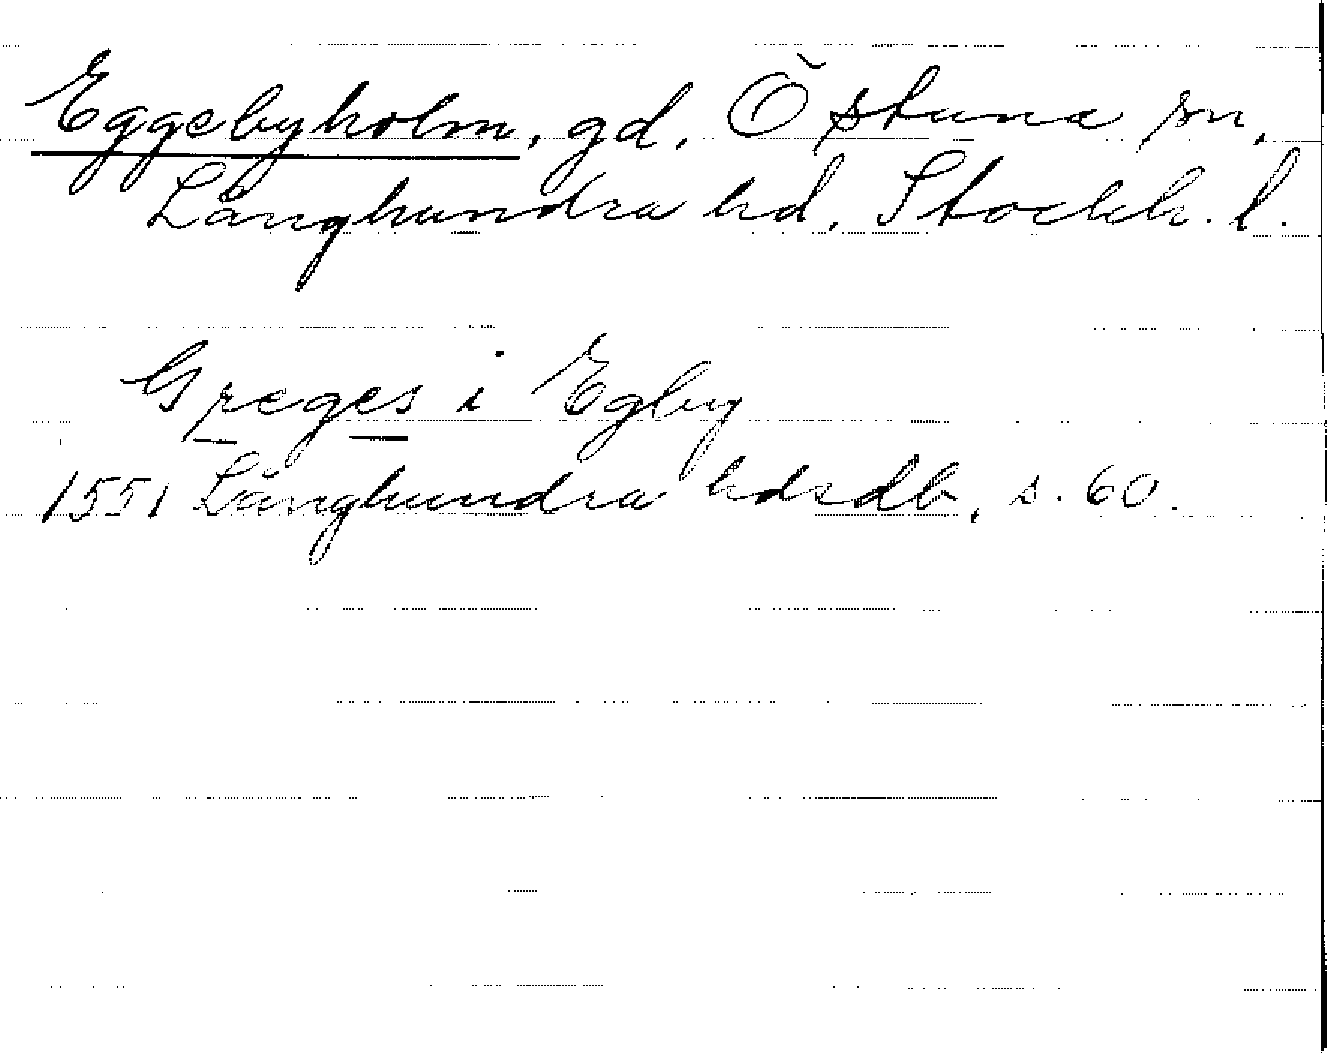 Eggebyholm, gd, Östuna sn,
Långhundra hd, Stockh. l.
Greges i Egby
1551 Långhundra hdsdb, s. 60.